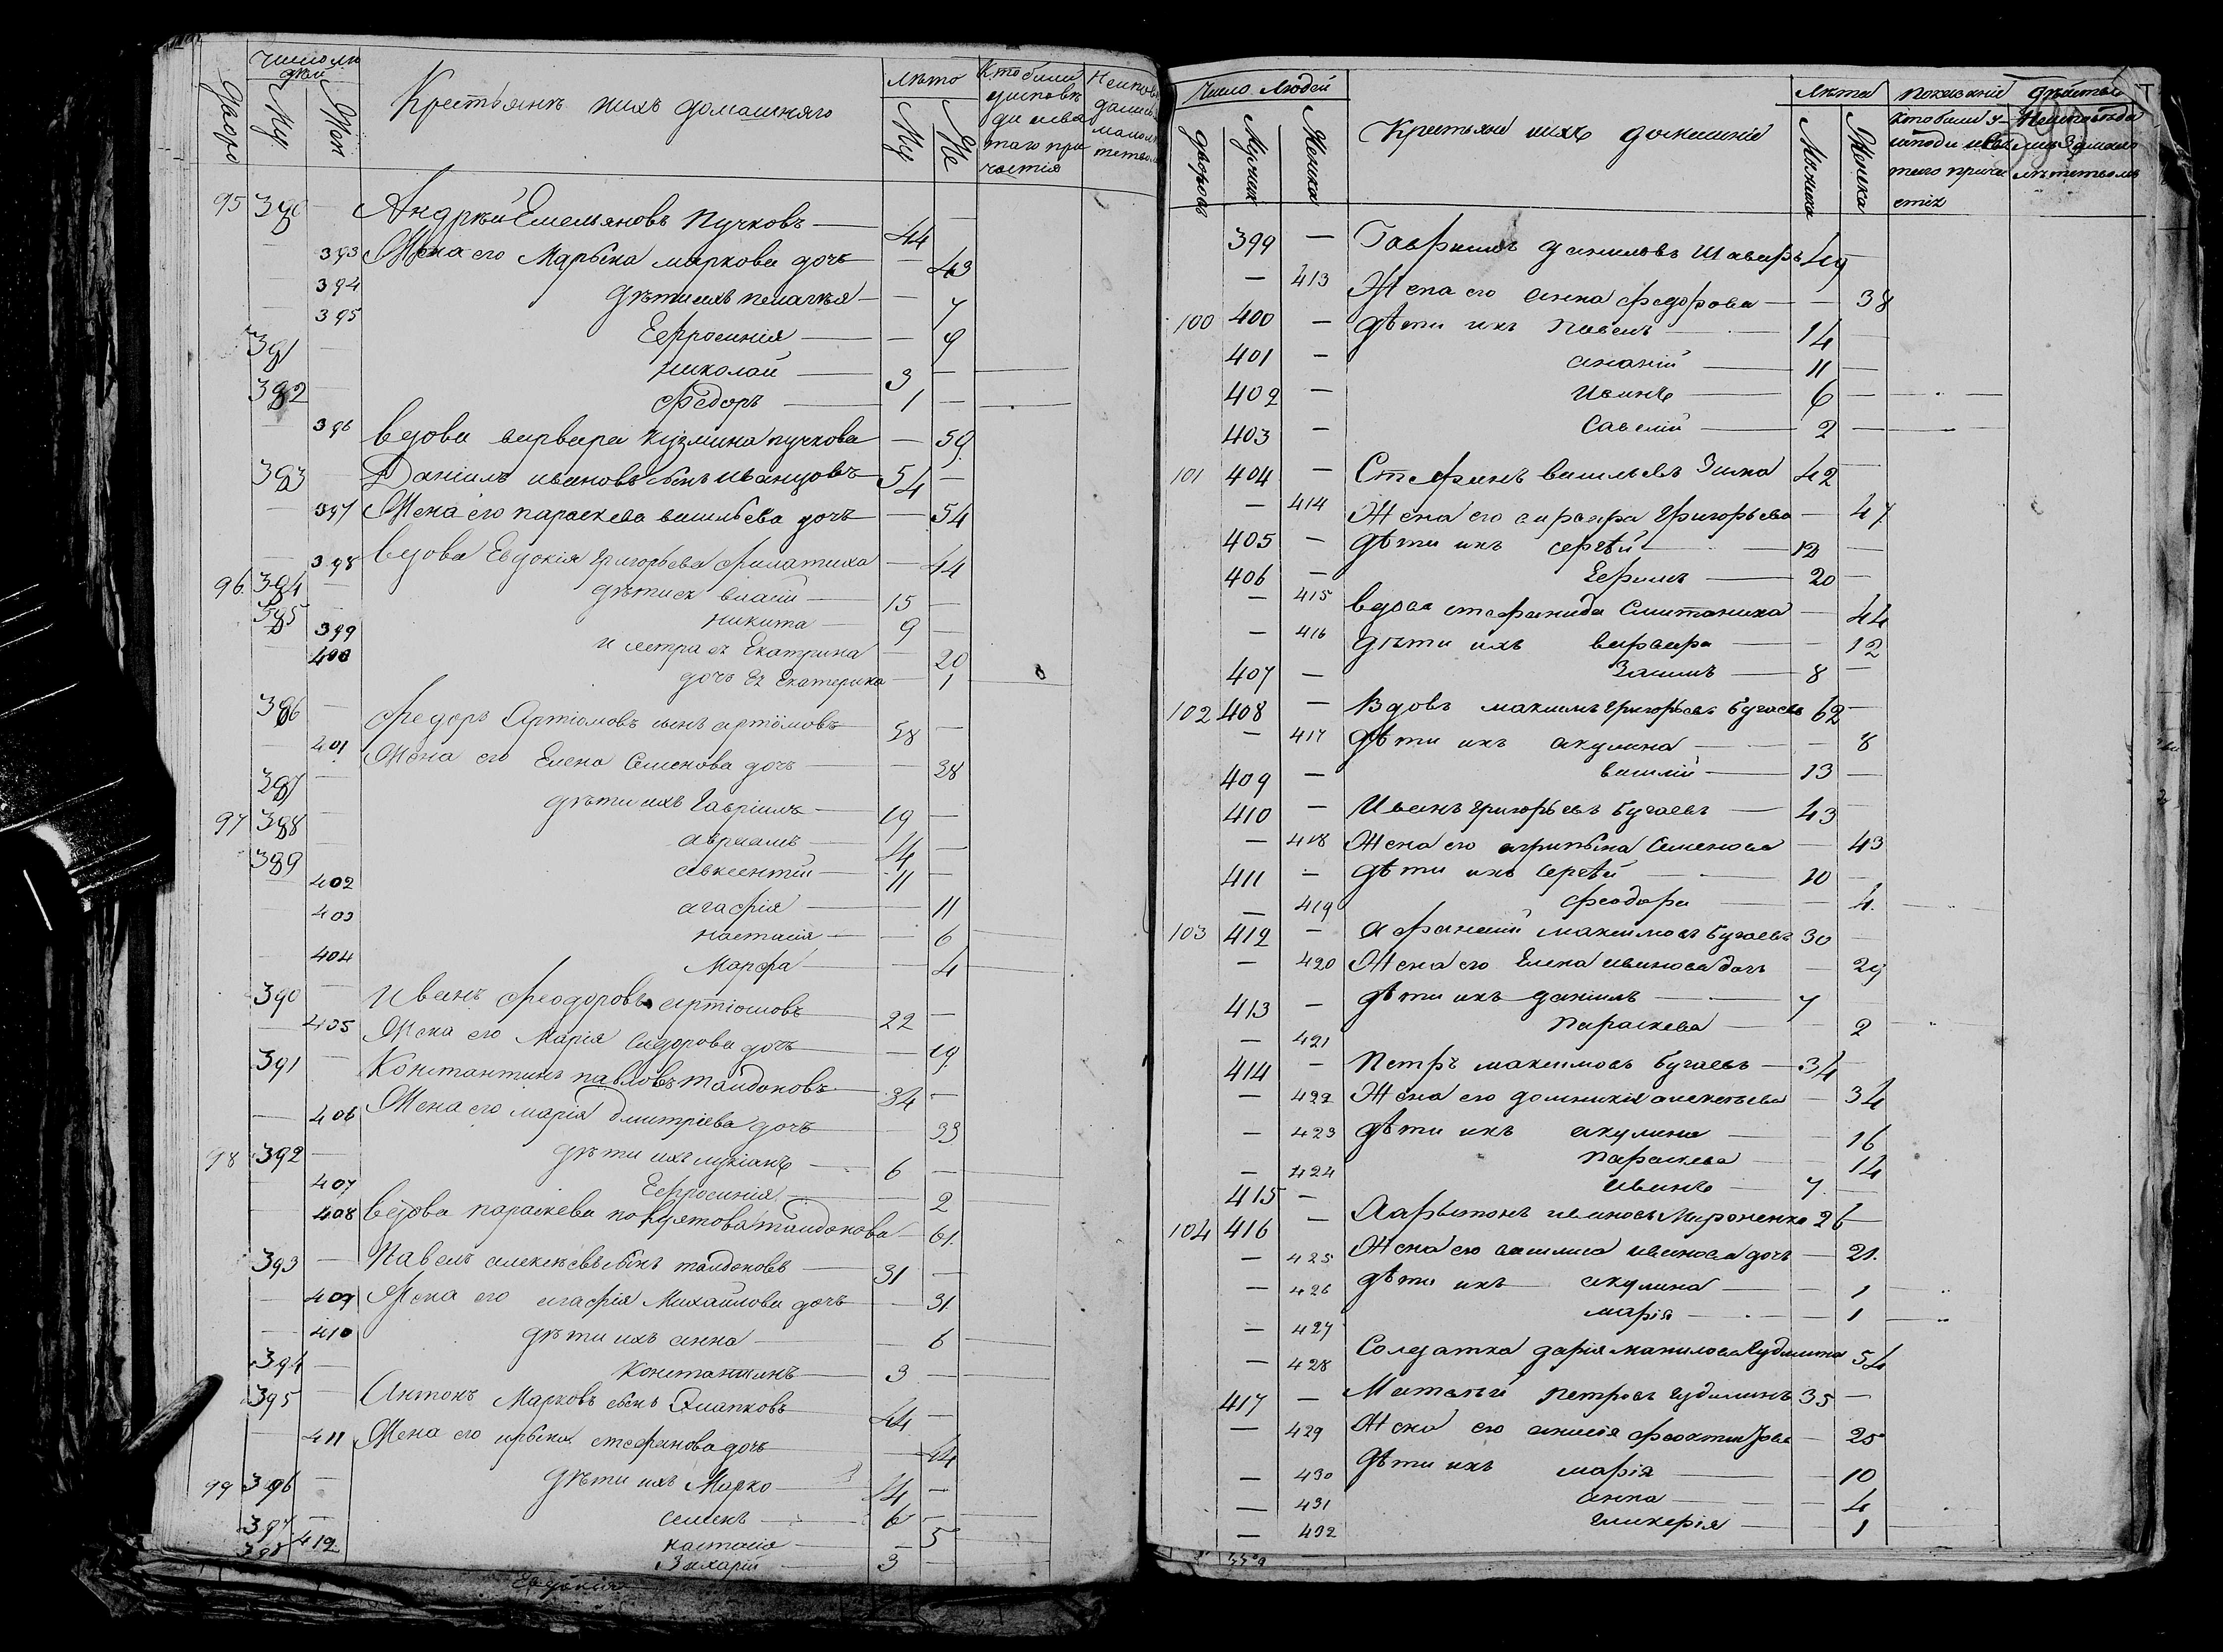 Число лю
дей
Дворо
Му
Жен
Крестьянъ и ихъ домашняго
лѣто
Му
Же
Кто были
у исповѣ
ди и свя
таго при
частія
95 380 — Андрѣй Емельяновъ Пучковъ — 44
— 393 Жена его Марѳина маркова дочь — 43
394 Дѣти ихъ пелагѣя — — 7
395 Ефросинія — — 9
381 — николай — 3 —
382 — Федоръ — 1 —
— 396 Вдова варвара кузмина пучкова — 59
383 — Даніилъ ивановъ сынъ иванцовъ — 54 —
— 397 Жена его параскева васильева дочь — 54
— 398 Вдова Евдокія григорьева филатиха — 44
96 384 — дѣти ея власій — 15 —
385 — никита — 9 —
399 и сестра ея Екатрина — 20
400 дочь ея екатерина — 1
386 — Федоръ Артіомовъ сынъ артіомовъ 38 —
— 401 Жена его Елена Семенова дочь — — 38
387 — дѣти ихъ Гавріилъ — 19 —
97 388 — авраамъ — 14 —
389 — авксентій — 11 —
402 агафія — — 11
403 настасія — — 6
404 Марфа — — 4
390 — Иванъ Феодоровъ артіомовъ 22 —
— 405 Жена его Марія Сидорова дочь — 19
391 — Константинъ павловъ талдоновъ — 34 —
— 406 Жена его марія дмитріева дочь — 33
98 392 — дѣти ихъ лукіанъ — 6 —
407 Ефросинія — — 2
408 Вдова параскева талдонова — 61
393 — Павелъ алексѣевъ сынъ талдоновъ — 31 —
— 409 Жена его агафія Михайлова дочь — 31
— 410 дѣти ихъ анна — — 6
394 — Константинъ — 3 —
395 — Антонъ Марковъ сынъ — 44 —
— 411 Жена его ирына стефанова дочь — 44
99 396 — Дѣти ихъ Марко — 14 —
397 — семенъ — 6 —
412 настасія — — 5
398 Захарій — 3 —
Евдокія
Число людей
дворовъ
Мужчин
Женска
Крестьяне и ихъ домашніе
лѣта
Мужеска
Женска
показаніе дѣйства
Кто были у
исповѣди и свя
таго прича
стія
399 — Гавріилъ даниловъ Шаваръ 49 —
— 413 Жена его анна федорова — — 38
100 400 — дѣти ихъ павелъ — 14 —
401 — ананій — 11 —
402 — Иванъ — 6 —
403 — Савелій — 2 —
101 404 — Стефанъ васильевъ Зима 42 —
— 414 Жена его варвара Григорьева — 47
405 — дѣти ихъ сергѣй — 12 —
406 — Ефимъ — 20 —
— 415 вдова стефанида Смитаниха — 44
— 416 дѣти ихъ варвара — — 12
407 — — 8 —
102 408 — Вдовъ максимъ григорьевъ Бугаевъ 62 —
— 417 дѣти ихъ акулина — — 8
409 — василій — 13 —
410 — Иванъ григорьевъ Бугаевъ — 43 —
— 418 Жена его агрипына Семенова — 43
411 — дѣти ихъ Сергѣй — 10 —
— 419 феодора — — 4
103 412 — афанасій максимовъ Бугаевъ 30 —
— 420 Жена его Елена иванова дочь — 29
413 — дѣти ихъ даніилъ — 7
— 421 параскева — — 2
414 — Петръ максимовъ Бугаевъ — 34 —
— 422 Жена его домникія алексѣева — 34
— 423 дѣти ихъ акулина — — 16
— 424 параскева — — 14
415 — иванъ — 7 —
104 416 — Харытонъ ивановъ Мироненко 26 —
— 425 Жена его василиса иванова дочь — 21
— 426 дѣти ихъ акулина — — 1
— 427 марія — — 1
— 428 Солдатка дарія манилова Гудилина 54
417 — Матвѣй петровъ гудилинъ 35 —
— 429 Жена его анисія — 25
— 430 дѣти ихъ марія — — 10
— 431 анна — — 4
— 432 гликерія — — 1